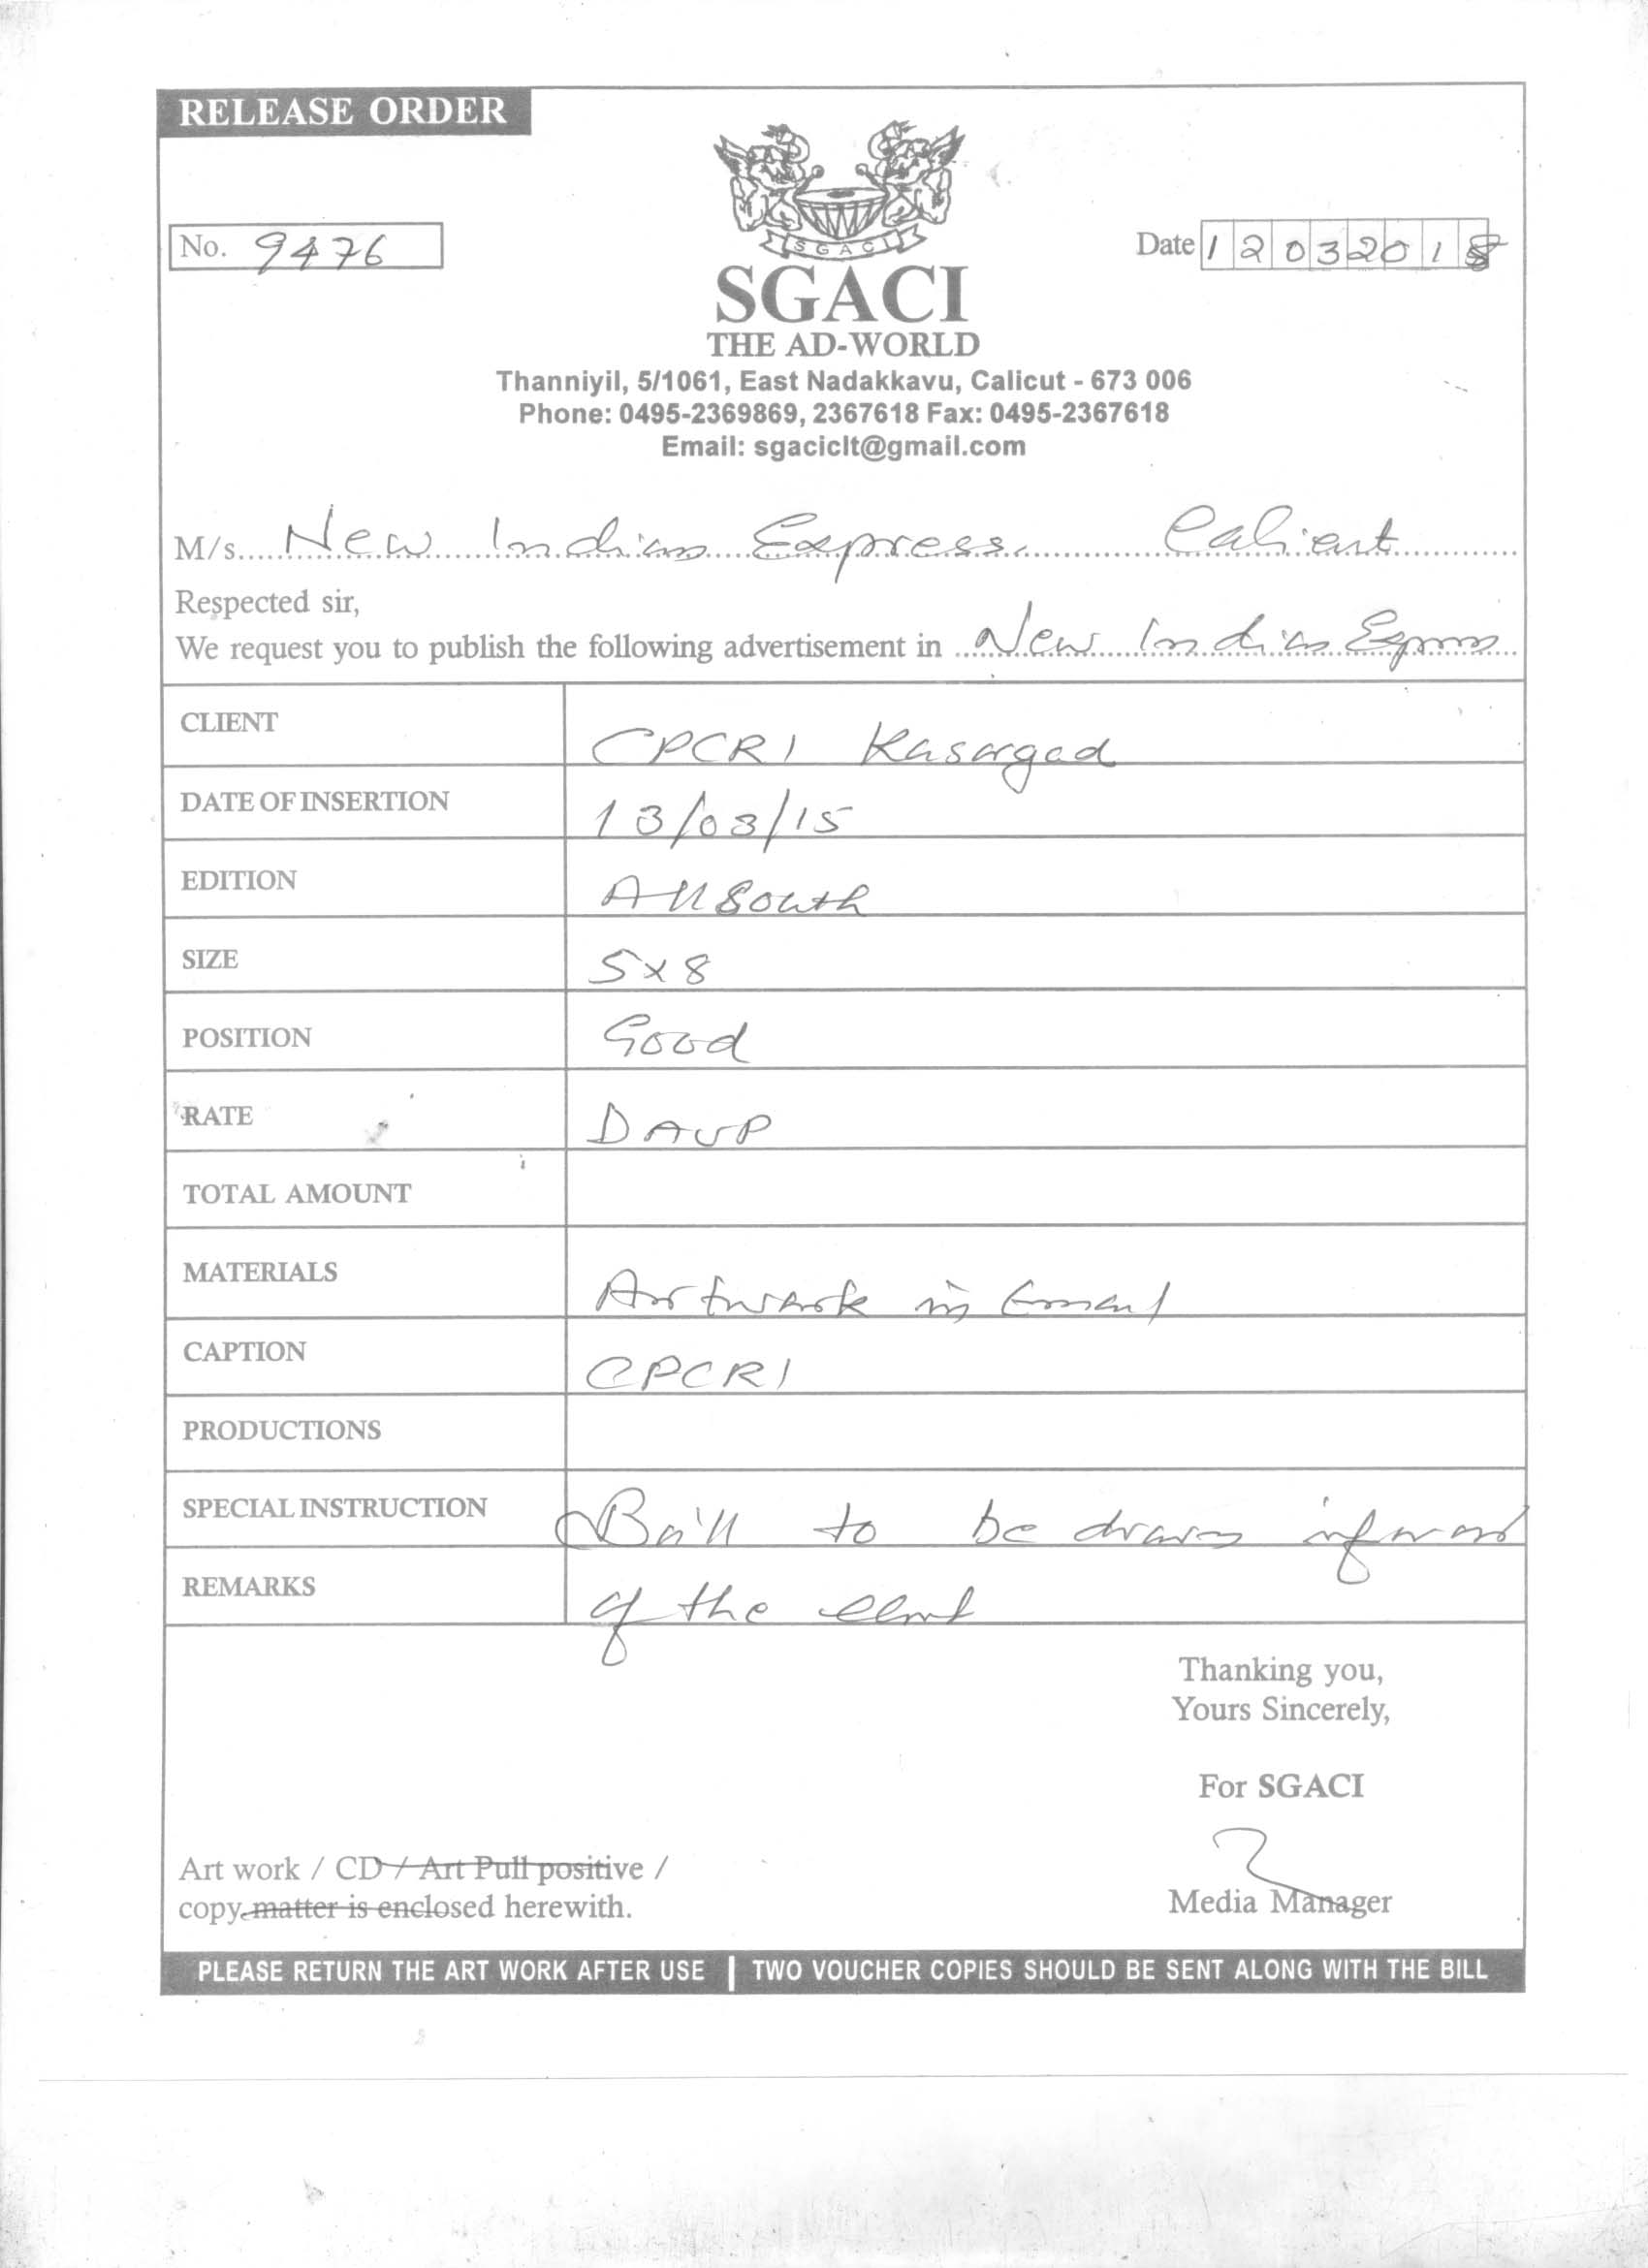 RELEASE ORDER
SGACI
No. 9476
Date 12032015
SGACI
THE AD-WORLD
Thanniyil, 5/1061, East Nadakkavu, Calicut - 673 006
Phone: 0495-2369869, 2367618 Fax: 0495-2367618
Email: sgaciclt@gmail.com
M/s. New Indian Express Calicut
Respected sir,
We request you to publish the following advertisement in New Indian Express
CLIENT CPCRI Kasargod
DATE OF INSERTION 13/03/15
EDITION All South
SIZE 5x8
POSITION Good
RATE DAVP
TOTAL AMOUNT
MATERIALS Artwork in Email
CAPTION CPCRI
PRODUCTIONS
SPECIAL INSTRUCTION Bill to be drawn
REMARKS of the client
Thanking you,
Yours Sincerely,
For SGACI
Art work / CD / Art Pull positive /
copy matter is enclosed herewith.
Media Manager
PLEASE RETURN THE ART WORK AFTER USE | TWO VOUCHER COPIES SHOULD BE SENT ALONG WITH THE BILL